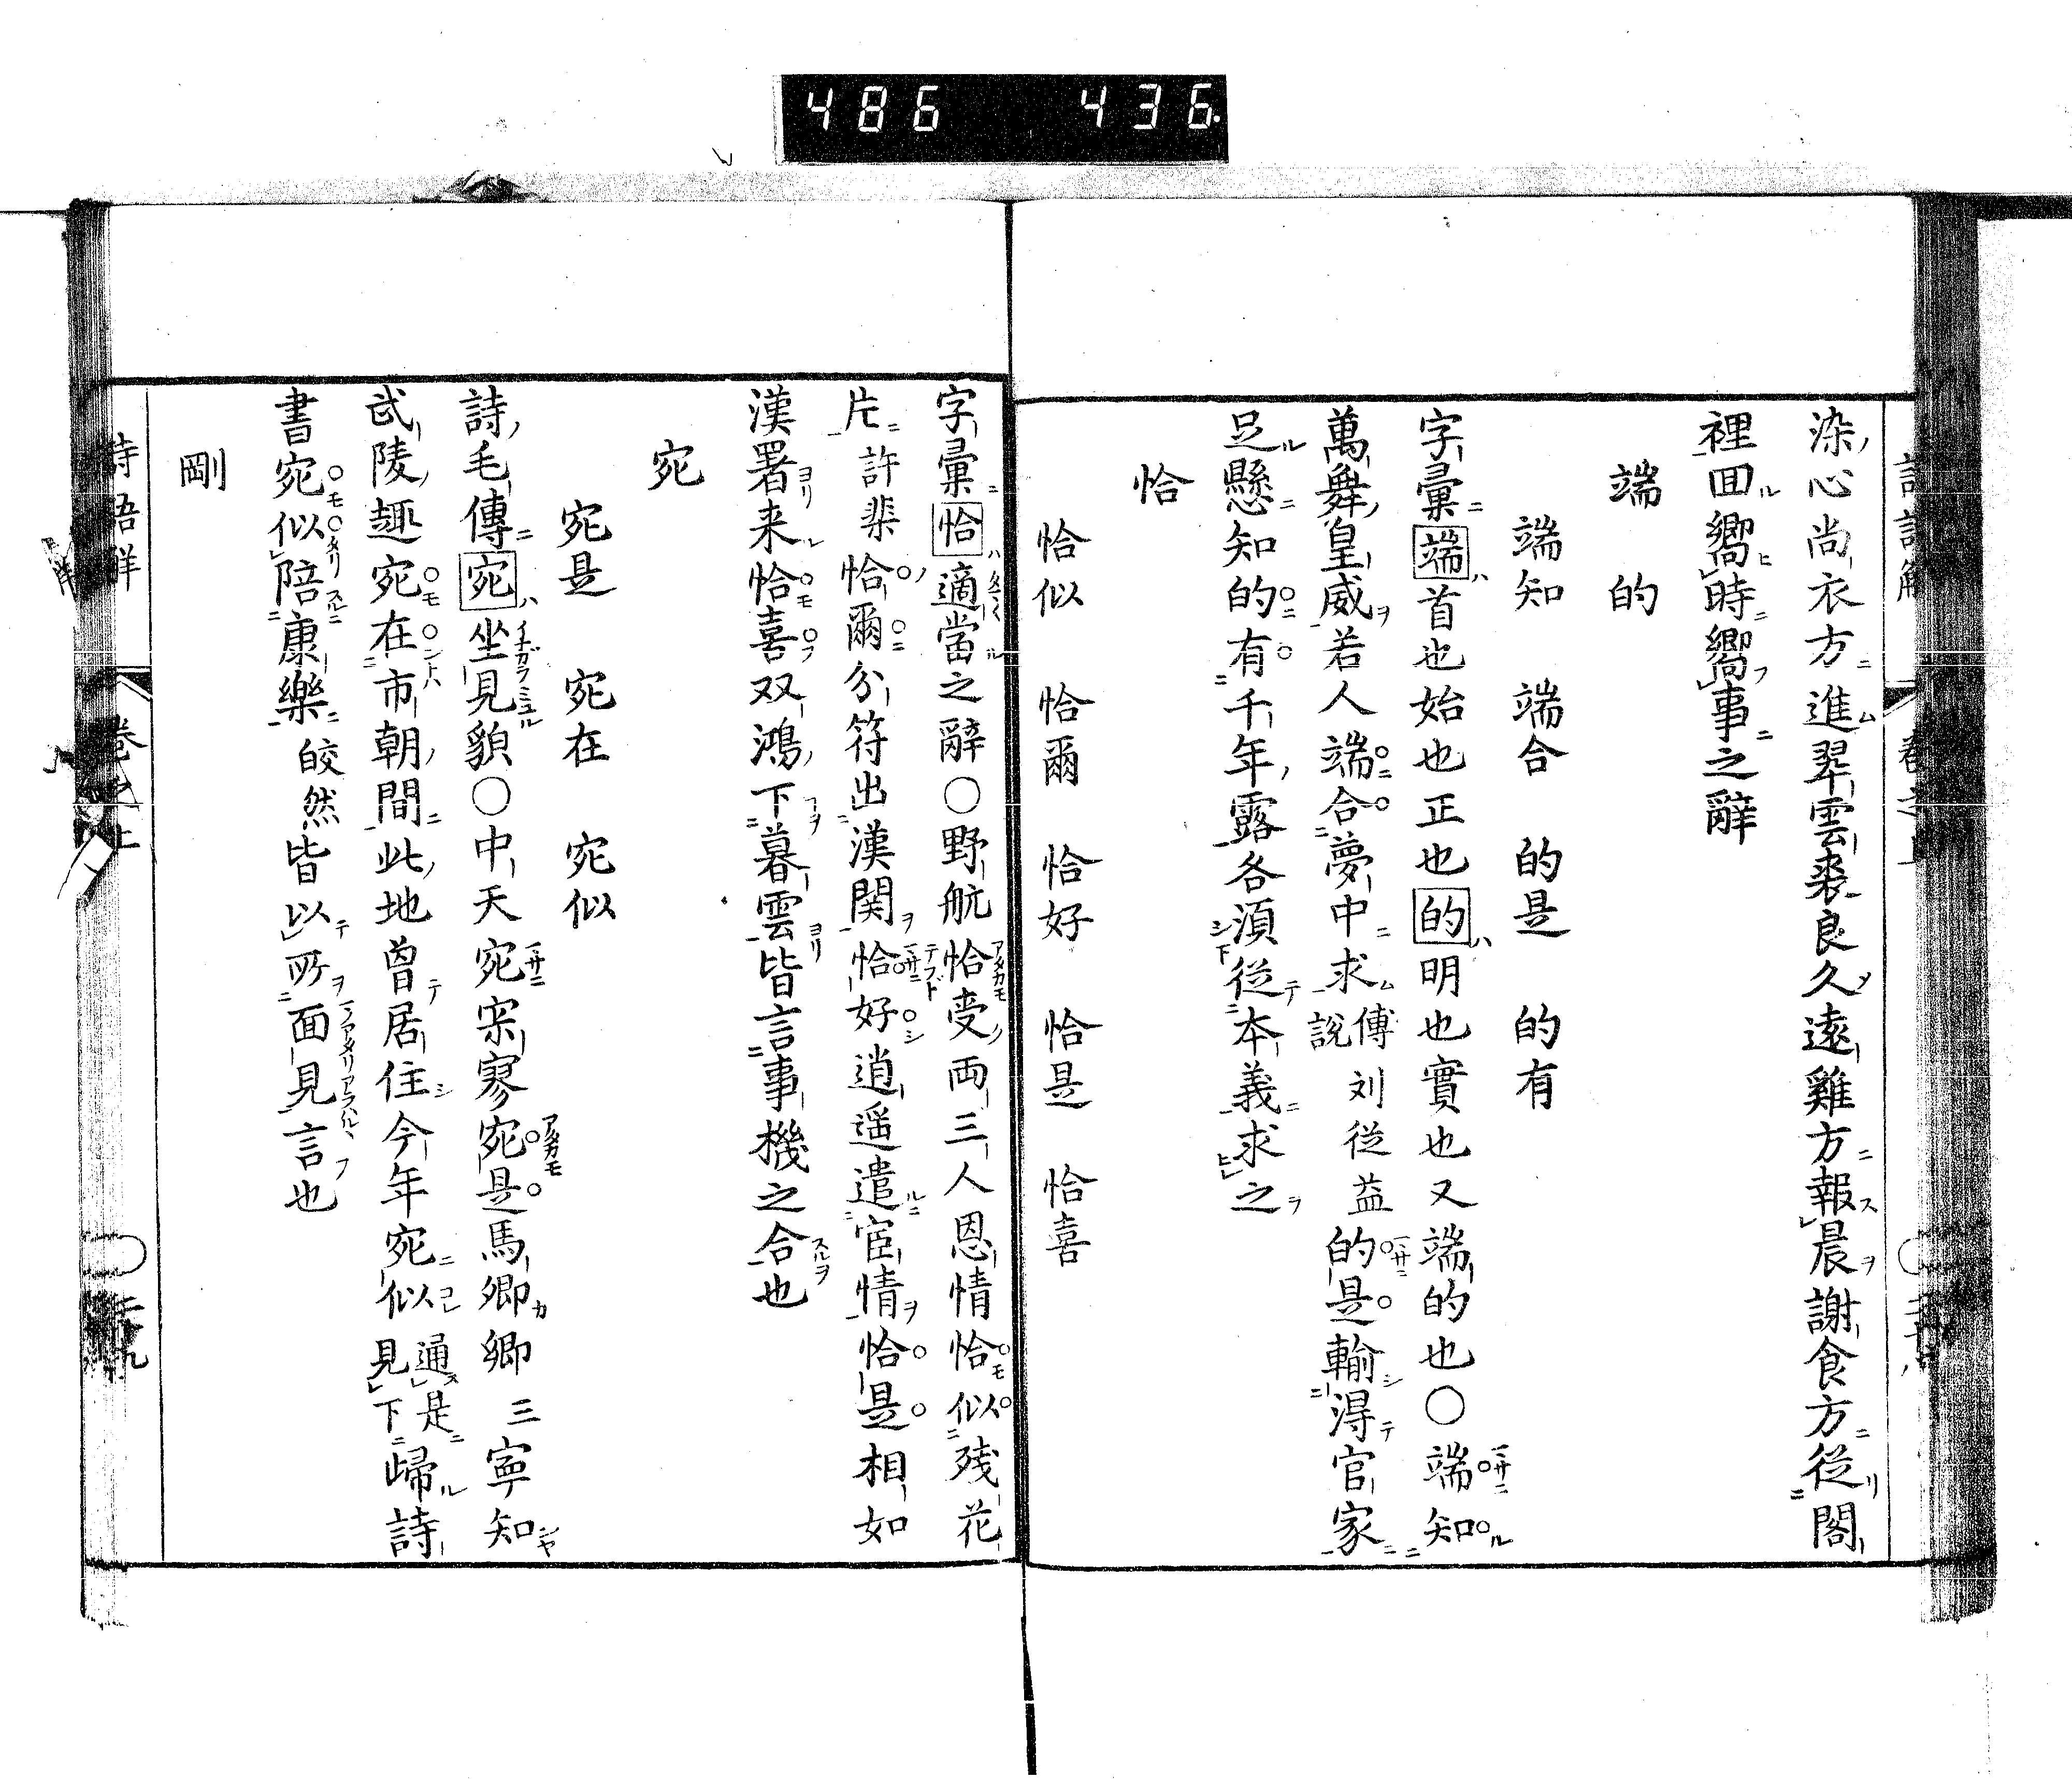 486 436.
染心尚衣方進翠雲裘良久遠雞方報晨謝食方從閣
裡回嚮時嚮事之辭
端 的
端知 端合 的是 的有
字彙端首也始也正也的明也實也又端的也〇端知
萬舞皇威若人端合夢中求傅說刘従益的是輸淂官家
足懸知的有千年露各須従本義求之
恰
恰似 恰爾 恰好 恰是 恰喜
字彙恰適當之辭〇野航恰受両三人恩情恰似残花
片許棐恰爾分符出漢関恰好逍遥遣宦情恰是相如
漢署来恰喜双鴻下暮雲皆言事機之合也
宛
宛是 宛在 宛似
詩毛傳宛坐見貌〇中天宛宲寥宛是馬卿卿三寧知
武陵趣宛在市朝間此地曽居住今年宛似通是見下歸詩
書宛似陪康樂皎然皆以所面見言也
剛
詩語解 卷之上